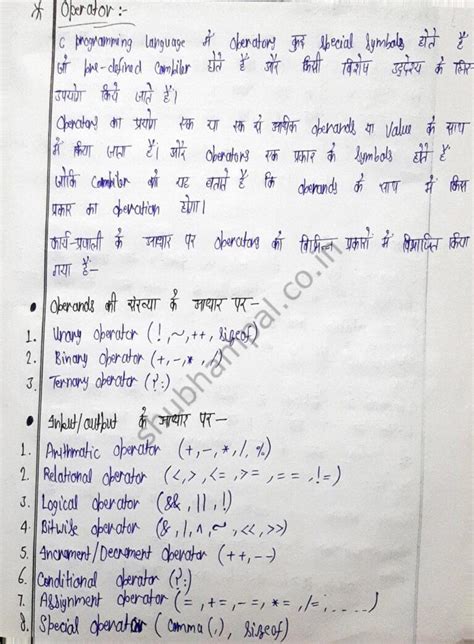 * Operator:-
C programming language में operators कुछ special symbols होते हैं
जो pre-defined compiler होते हैं और किसी विशेष उद्देश्य के लिए
उपयोग किये जाते हैं।
Operators का प्रयोग एक या एक से अधिक operands या value के साथ
में किया जाता है। और operators एक प्रकार के symbols होते हैं
जोकि compiler को यह बताते हैं कि operands के साथ में किस
प्रकार का operation होगा।
कार्य-प्रणाली के आधार पर operators को विभिन्न प्रकारों में विभाजित किया
गया है:-
• Operands की संख्या के आधार पर:-
1. Unary operator (!,~,++, sizeof)
2. Binary operator (+,-,*,/)
3. Ternary operator (?:)
• Input/output के आधार पर:-
1. Arythmatic operator (+,-,*,/,%)
2. Relational operator (<,>,<=,>=,==,!=)
3. Logical operator (&&,||,!)
4. Bitwise operator (&,|,^,~,<<,>>)
5. Increment/Decrement operator (++,--)
6. Conditional operator (?:)
7. Assignment operator (=,+=,-=,*=,/=,.....)
8. Special operator (comma(,), sizeof)
shubhampal.co.in